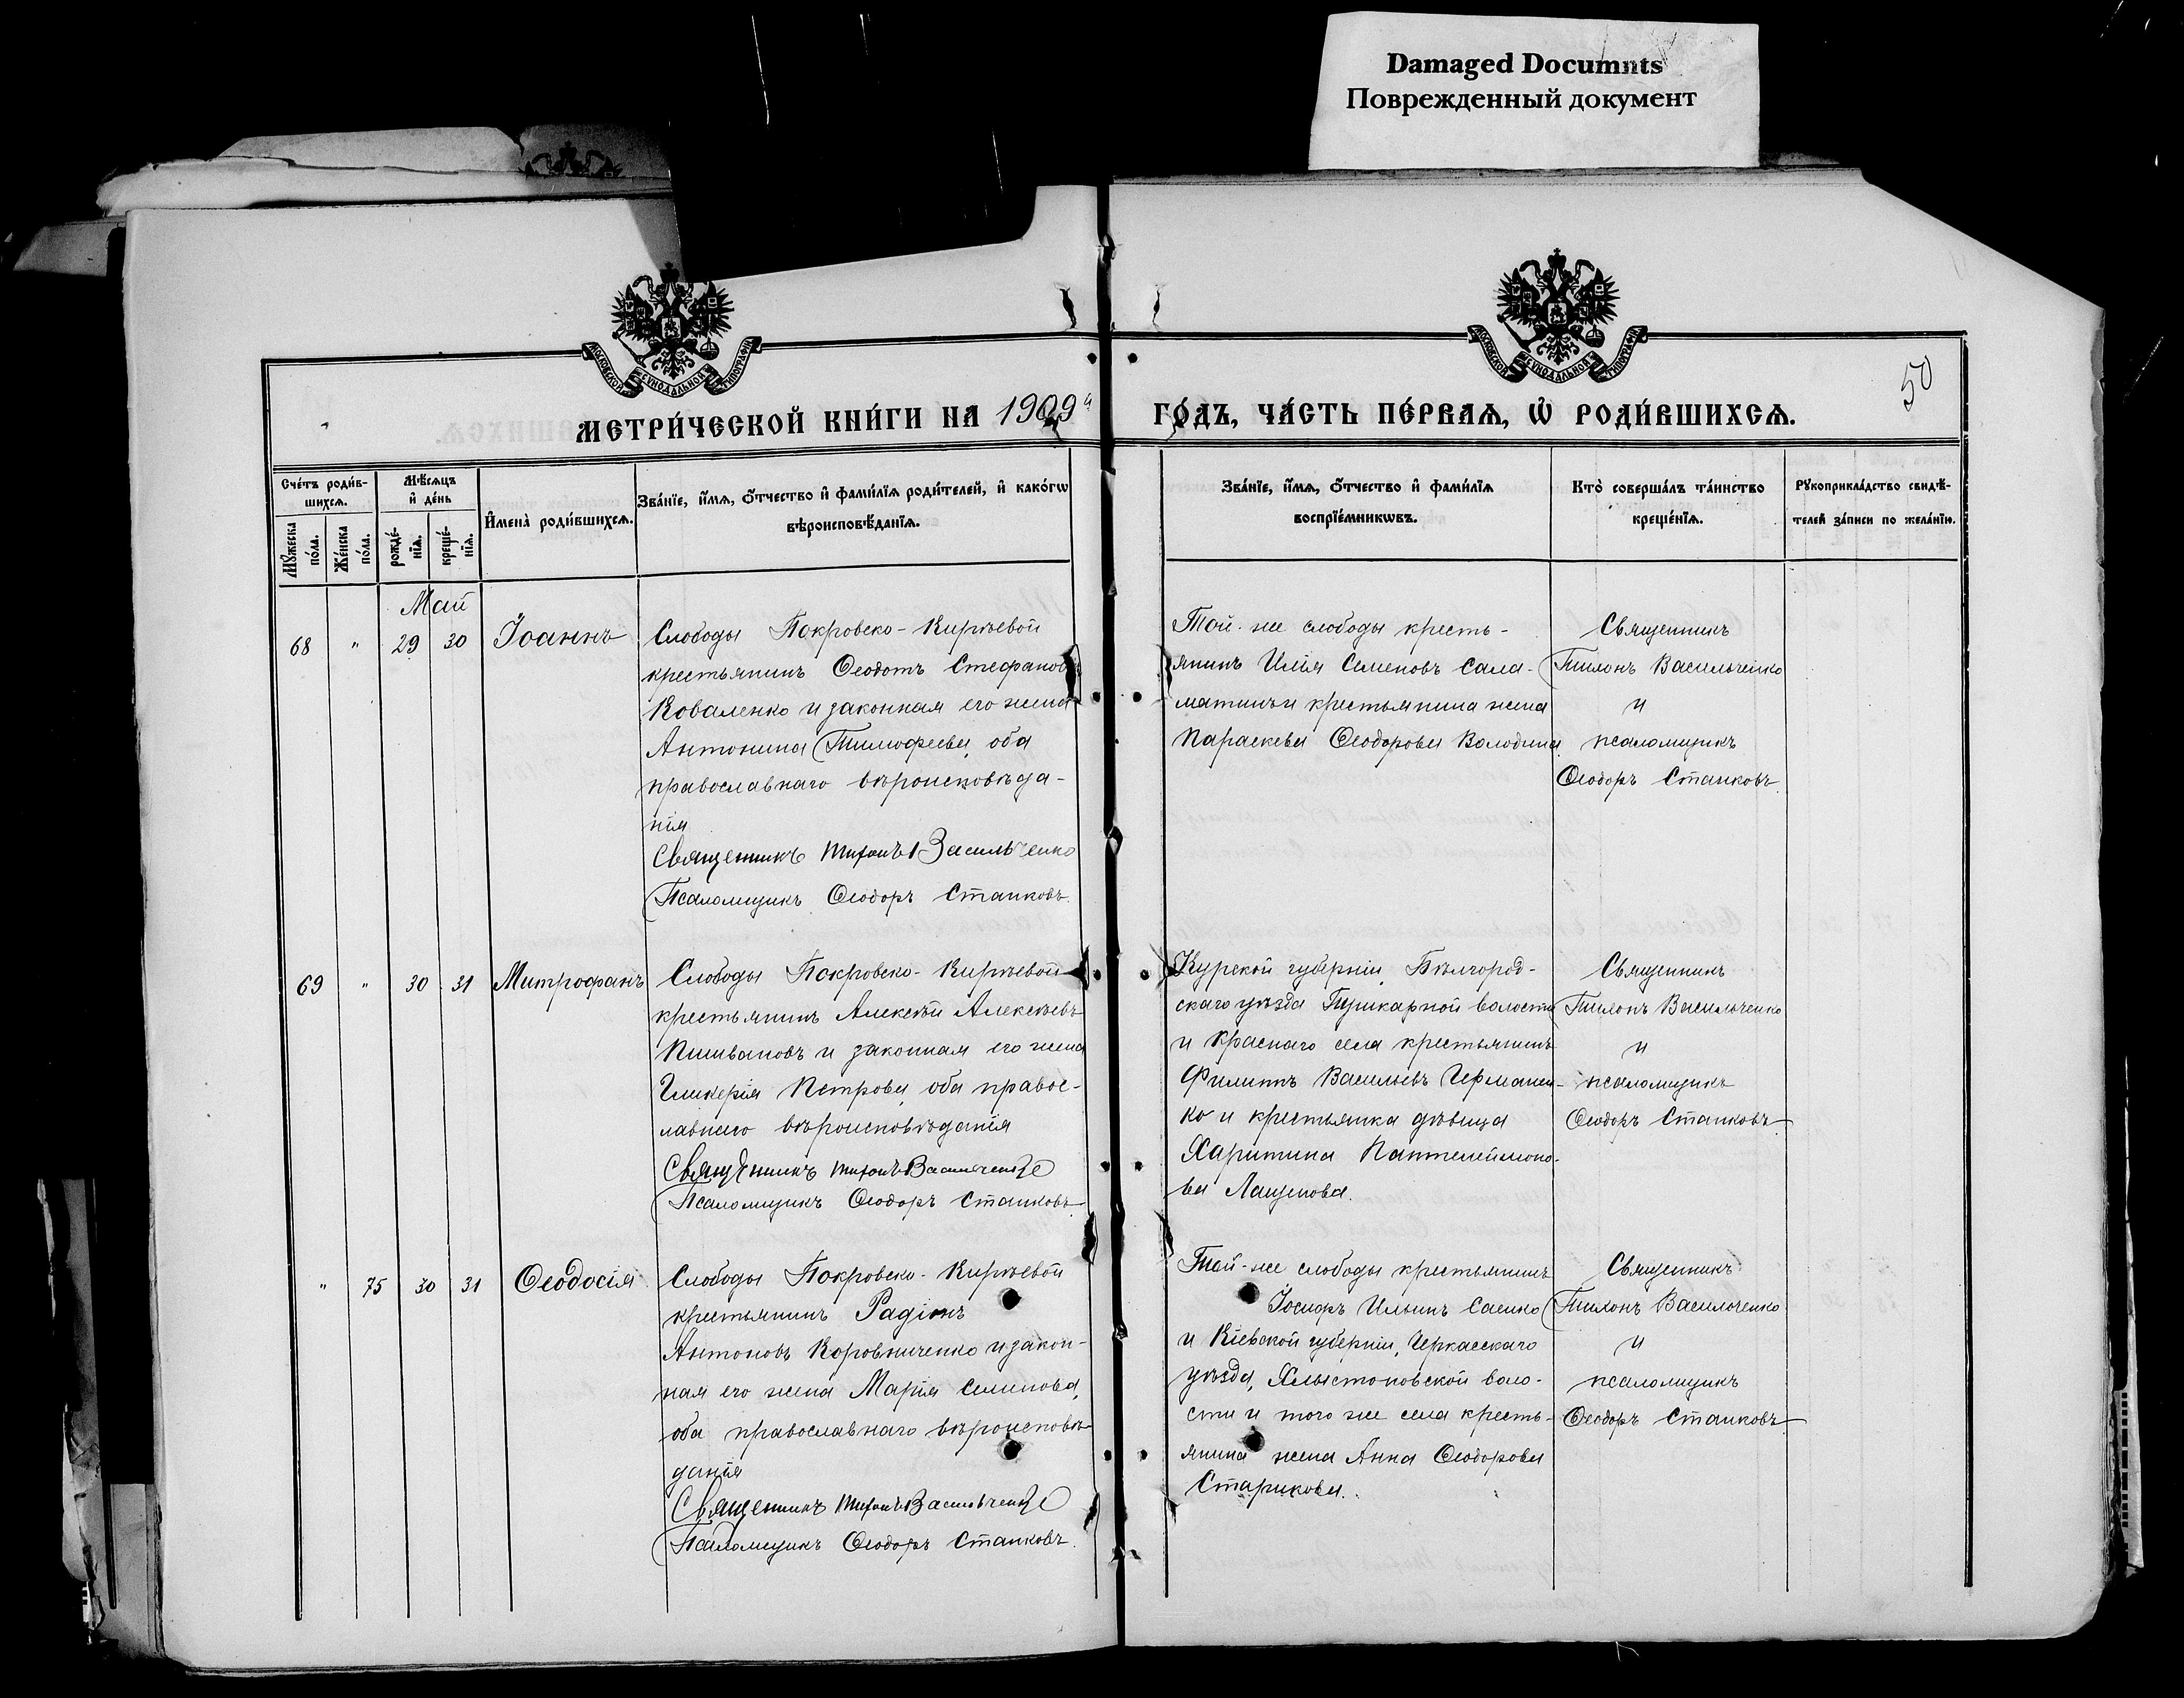 Damaged Documnts
Поврежденный документ
МОСКОВСКОЙ СУНОДАЛЬНОЙ ТИПОГРАФІИ
МОСКОВСКОЙ СУНОДАЛЬНОЙ ТИПОГРАФІИ
50
МЕТРИ́ЧЕСКОЙ КНИ́ГИ НА 1909й ГО́ДЪ, ЧА́СТЬ ПЕ́РВАѦ, Ѡ҆ РОДИ́ВШИХСѦ.
Сче́тъ роди́в-
шихсѧ.
Мѣ́сѧцъ
и҆ де́нь
Мꙋ́жеска
по́ла.
Же́нска
по́ла.
рожде́-
нїѧ.
креще́-
нїѧ.
И҆мена̀ роди́вшихсѧ.
Зва́нїе, и҆́мѧ, ѻ҆́тчество и҆ фами́лїѧ роди́телей, и҆ како́гѡ
вѣроисповѣ́данїѧ.
Зва́нїе, и҆́мѧ, ѻ҆́тчество и҆ фами́лїѧ
воспрїе́мникѡвъ.
Кто̀ соверша́лъ та́инство
креще́нїѧ.
Рꙋкоприкла́дство свидѣ́-
телей за́писи по жела́нїю.
Май
68 " 29 30 Іоаннъ
Слободы Покровско-Кирѣевой
крестьянинъ Ѳеодотъ Стефановъ
Коваленко и законная его жена
Антонина Тимоѳеева, оба
православнаго вѣроисповѣда-
нія
Священникъ Тихонъ Васильченко
Псаломщикъ Ѳеодоръ Станковъ.
Той-же слободы кресть-
янинъ Илія Семеновъ Сала-
матинъ и крестьянина жена
Параскева Ѳеодорова Володина
Священникъ
Тихонъ Васильченко
и
псаломщикъ
Ѳеодоръ Станковъ.
69 " 30 31 Митрофанъ
Слободы Покровско-Кирѣевой
крестьянинъ Алексѣй Алексѣевъ
и законная его жена
Гликерія Петрова, оба правос-
лавнаго вѣроисповѣданія
Священникъ Тихонъ Васильченко
Псаломщикъ Ѳеодоръ Станковъ.
Курской губерніи Бѣлгород-
скаго уѣзда Пушкарной волости
и Краснаго села крестьянинъ
Филиппъ Васильевъ Германен-
ко и крестьянка дѣвица
Харитина Пантелеймоно-
ва Лащенова.
Священникъ
Тихонъ Васильченко
и
псаломщикъ
Ѳеодоръ Станковъ.
" 75 30 31 Ѳеодосія
Слободы Покровско-Кирѣевой
крестьянинъ Радіонъ
Антоновъ Коровниченко и закон-
ная его жена Марія Семенова,
оба православнаго вѣроисповѣ-
данія
Священникъ Тихонъ Васильченко
Псаломщикъ Ѳеодоръ Станковъ.
Той-же слободы крестьянинъ
Іосифъ Ильинъ Саенко
и Кіевской губерніи, Черкасскаго
уѣзда, Хлыстоновской воло-
сти и того же села кресть-
янина жена Анна Ѳеодорова
Старикова.
Священникъ
Тихонъ Васильченко
и
псаломщикъ
Ѳеодоръ Станковъ.